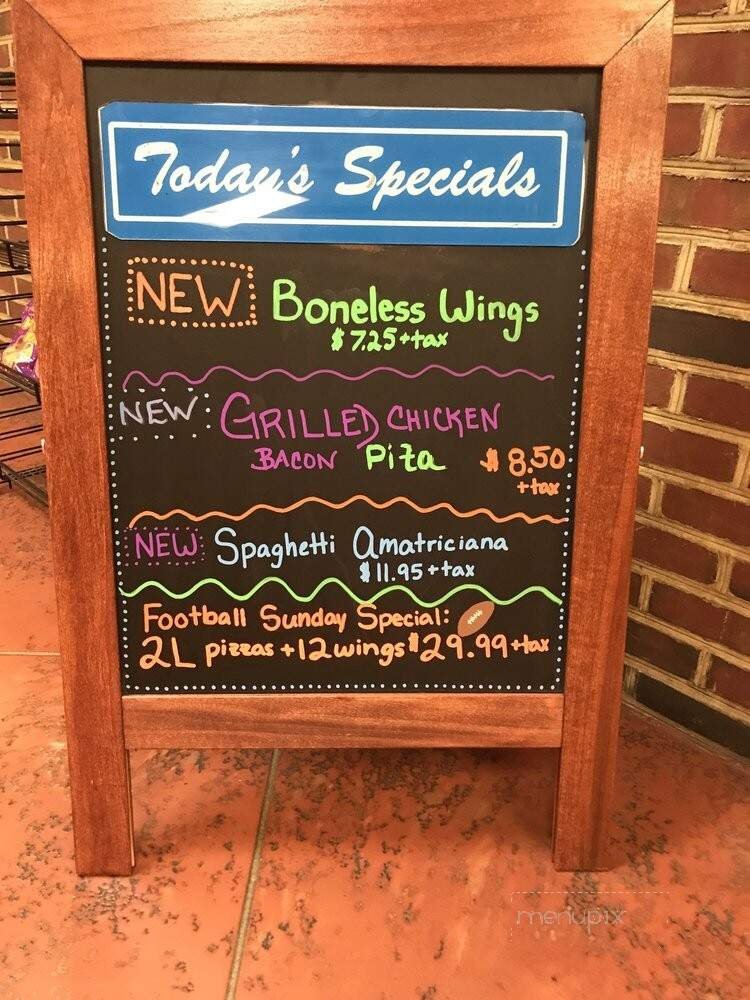 Today's Specials
NEW Boneless Wings
$7.25+tax
NEW: GRILLED CHICKEN
BACON Pita $8.50
+tax
NEW: Spaghetti Amatriciana
$11.95+tax
Football Sunday Special:
2L pizzas+12wings $29.99+tax
menupix